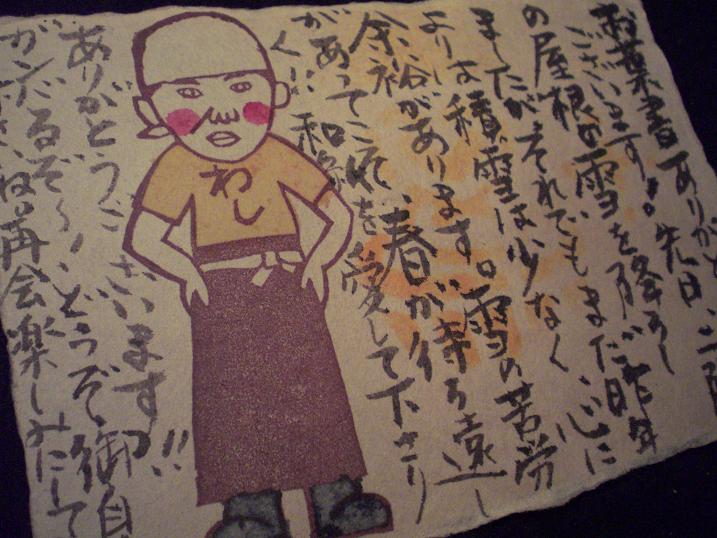 お葉書ありがとう
ございます!。先日、二階
の屋根の雪を降ろし
ましたが、それでもまだ昨年
よりは積雪は少なく、心に
余裕があります。雪の苦労
があってこそ、春が待ち遠し
く!! 和紙を愛して下さり
ありがとうございます!!
がんばるぞ〜!、どうぞ御自
さいね。再会楽しみにして
わし